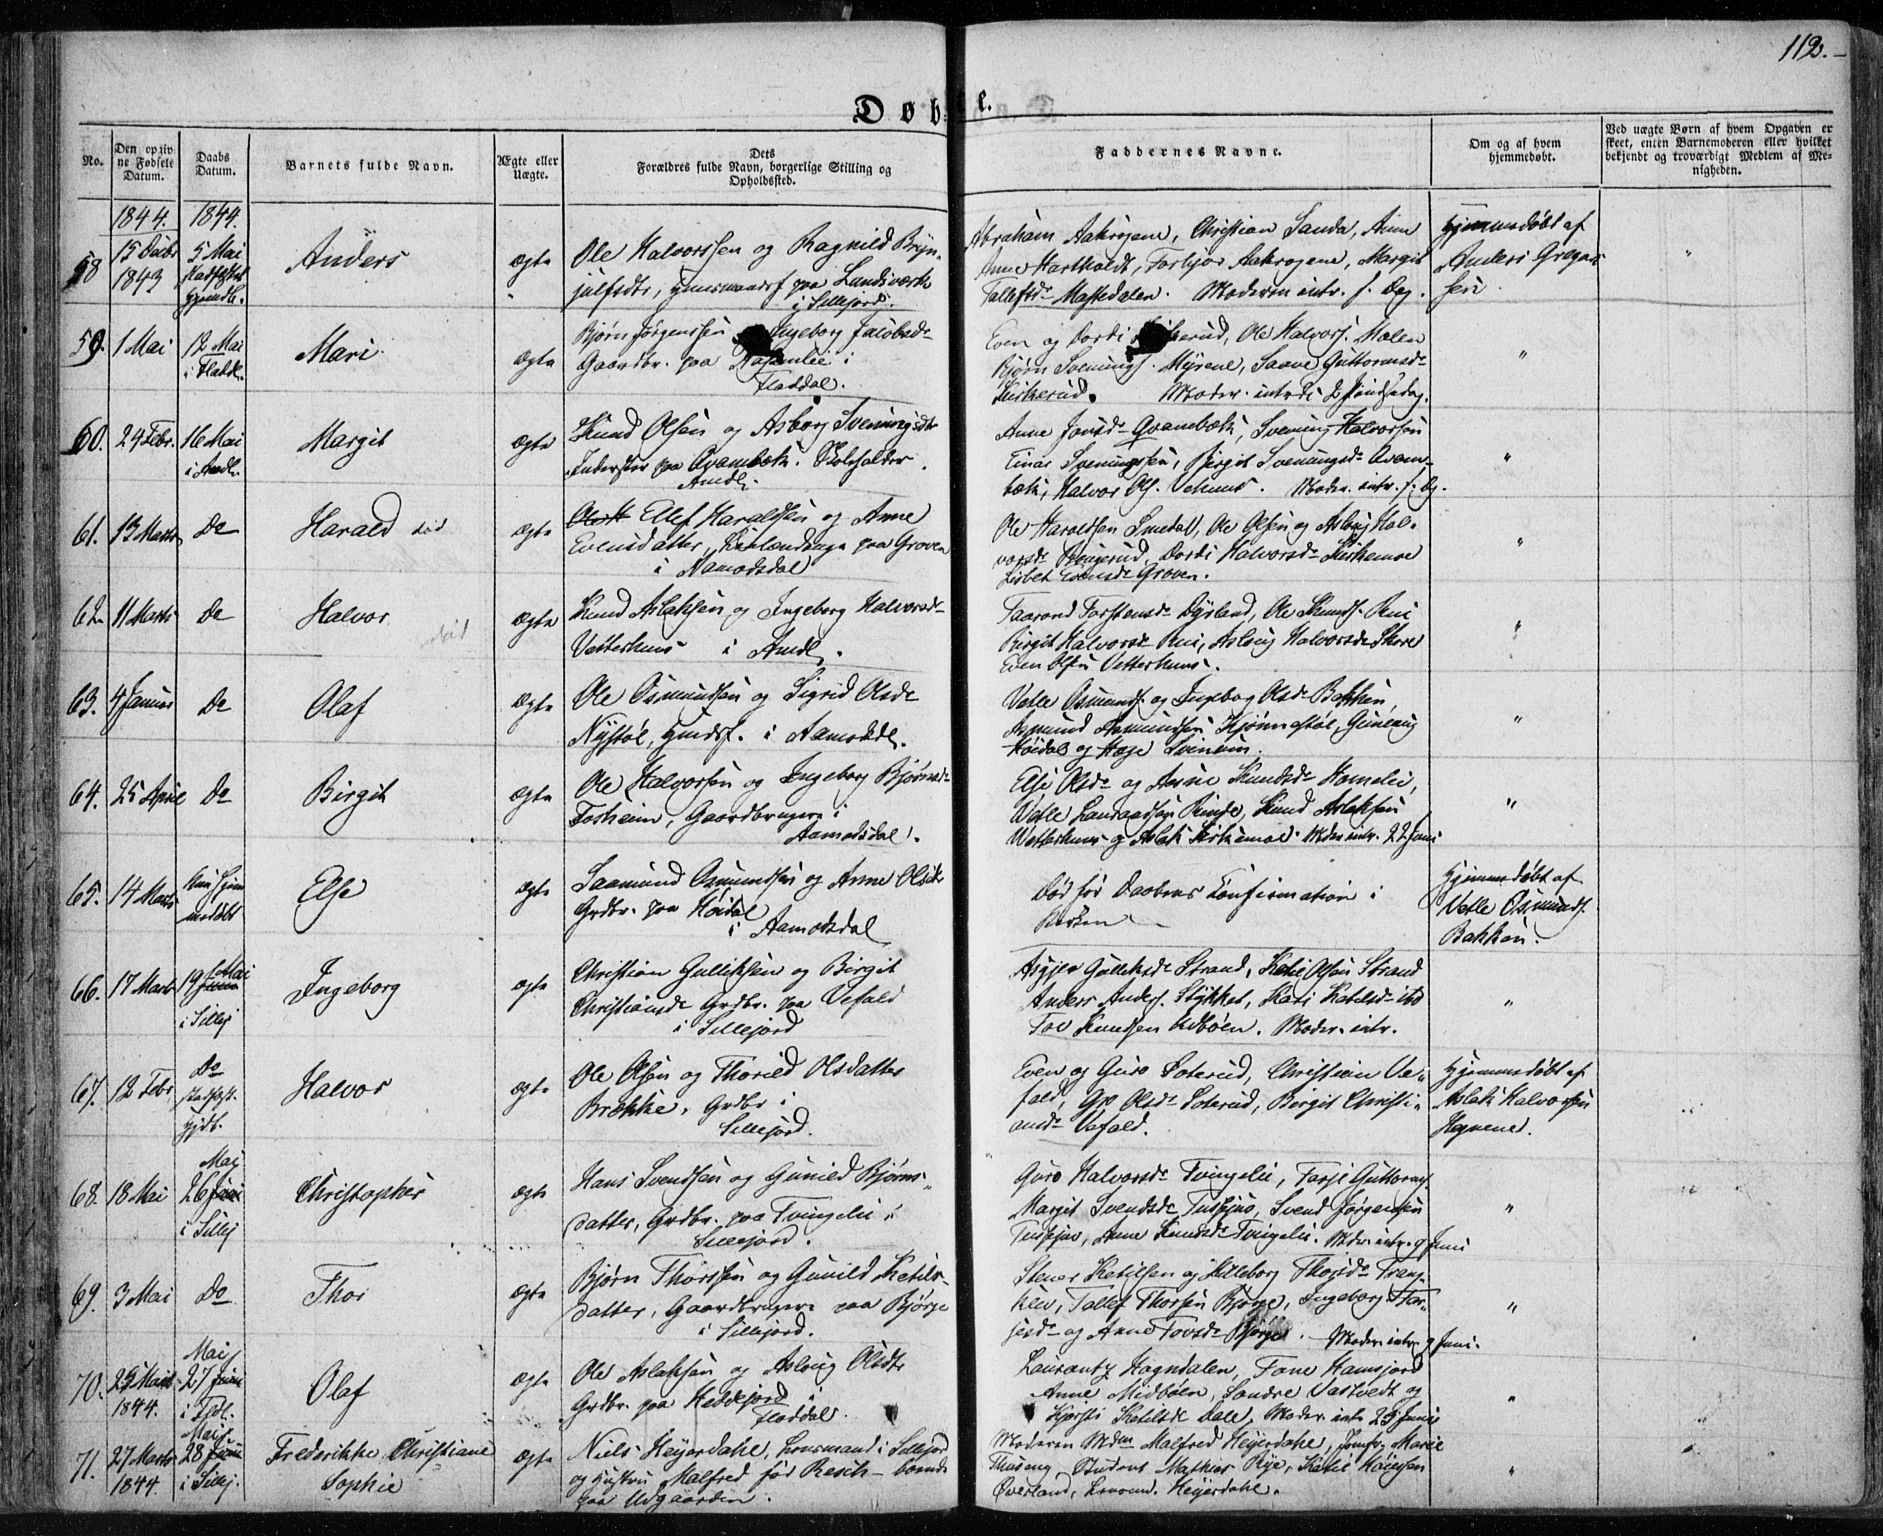 112.
Døbte.
No.
Den opgiv
ne Fødsels
Datum.
Daabs
Datum.
Barnets fulde Navn.
Ægte eller
Uægte.
Dets
Forældres fulde Navn, borgerlige Stilling og
Opholdssted.
Faddernes Navne.
Om og af hvem
hjemmedøbt.
Ved uægte Børn af hvem Opgaven er
skeet, enten Barnemoderen eller hvilket
bekjendt og troværdigt Medlem af Me-
nigheden.
1844. 1844.
58
15 Decbr
1843
5 Mai
Anders
ægte
Ole Halvorssen og Ragnild Bryn-
julfsdtr, Huusmandsf. paa Lundsværk
i Sillejord.
Abraham Aakrogene, Christian Sanda, Anne
Anne Hartholdt, Torbjør Aakrogene, Margit
Tallefsd. Mastedalen. Moderen intr. s. Dag.
Hjemmedøbt af
Anders Gragaas
sen
59. 1 Mai
12 Mai
i Fladd.
Mari
ægte
Bjørn Jørgenssen Ingeborg Jacobsd.
Gaardbr. paa i
Fladdal.
Even og Dordi Kirkerud, Ole Halvors. Molen
Bjørn Svenings. Myrene, Saave Guttormsd.
Kirkerud. Moder. intrds 2 Pindsedag.
"
60. 24 Febr.
16 Mai
i Amdl.
Margit
ægte
Knud Olsen og Asborg Sveningsdtr
Inderster paa Qvambæk. Skoleholder
Amdl.
Anne Jonsd. Qvanebæk, Svening Halvorsen
Einar Sveningssen, Birgit Sveningsd. Qvam-
bæk, Halvor Ols. Vehuus. Moder. intr. s. Dg.
"
61. 13 Marts Do
Harald død
ægte
Ellef Haraldsen og Anne
Evensdatter, paa Groven
i Aamodsdal
Ole Haraldsen Smedal, Ole Olsen og Aslaug Hal-
vorsd. Dordi Halvorsd. Kirkemoe
Lisbet Evensd. Groven.
"
62. 11 Marts Do
Halvor
død
ægte
Knud Aslaksen og Ingeborg Halvorsd.
Vetterhuus i Amdl.
Taarand Torstensd. Dyrland, Ole Knuds. Rui
Birgit Halvorsd. Rui, Aslaug Halvorsd. Skore
Even Olsen Vetterhuus.
"
63. 4 Januar Do
Olaf
ægte
Ole Osmundsen og Sigrid Olsd.
Nystøl, Huusf. i Aamodsd.
Vetle Osmunds. og Ingebog Olsd. Bakken,
Asmund Asmundsen Kjønnestøl, Gunleug
Høidal og Hæge Svinem.
"
64. 25 April Do
Birgit
ægte
Ole Halvorsen og Ingeborg Bjørnsd.
Fosheim, Gaardbruger i
Aamodsdal.
Else Olsd. og Anne Knudsd. Homelie,
Vetle Lavraadsen Rinde, Knud Aslaksen
Vetterhuus og Aslak Kirkemoe. Moder intr. 22 Juni
"
65. 14 Marts
Kun hjem
medøbt
Else
ægte
Saamund Osmundsen og Anne Olsdtr
Grdbr. paa Høidal
i Aamodsdal
Død før Daabens Confirmation i
Kirken
Hjemmedøbt af
Vetle Osmunds.
Bakken.
66. 17 Marts
19 Mai
i Sillej
Ingeborg
ægte
Christian Gulliksen og Birgit
Christiansd. Grdbr. paa Vefald
i Sillejord
Asgjer Gulleksd. Strand, Ketil Olsen Strand
Anders Anders. Stykket, Kari Ketilsd. ibd
Tov Knudsen Udbøen. Moder. intr.
"
67. 12 Febr
Do
stadfæst.
hjdt.
Halvor
ægte
Ole Olsen og Thorild Olsdatter
Brække, Grdbr i
Sillejord.
Even og Guro Soterud, Christian Ve-
fald, Gro Olsd. Soterud, Birgit Christi-
ansd. Vefald.
Hjemmedøbt af
Aslak Halvorsen
Hegnene.
68. 18 Mai
Mai
26 Juni
i Sillej
Christopher
ægte
Hans Svendsen og Gunild Bjørns-
datter, Grdbr. paa Tvingelie i
Sillejord.
Guro Halvorsd. Tvingelie, Tarje Guttorms
Margit Svendsd. Svend Jørgensen
Anne Knudsd. Tvingelie. Moder intr. 9 Juni
"
69. 3 Mai Do
Thor
ægte
Bjørn Thorssen og Gunild Ketils-
datter, Gaardbruger paa Bjørge
i Sillejord.
Stener Ketilsen og Silleborg Thorsd. Trang-
klev, Tallef Thorsen Bjørge, Ingeborg Tar-
jesd. og Anne Tovsd. Bjørge. Moder intr. 9 Juni.
"
70.
25 Marts
1844.
Mai
27 Juni
i Fldl.
Olaf
ægte
Ole Aslaksen og Aslaug Olsdtr
Grdbr. paa Heddejord i
Fladdal.
Laurantz Hogndalen, Tone Hamsjord
Anne Midbøen, Sondre Vastvedt og
Kjersti Ketilsd. Dale, Moder. intr 25 Juni
"
71.
27 Marts
1844.
Mai
28 Juni
i Sillej.
Frederikke Christiane
Sophie
ægte
Niels Heyerdahl, Lensmand i Sillejord
og Hustru Malfred før Resch - boende
paa Udgaarden.
Moderen Mdm Malfred Heyerdahl, Jomfr. Marie
Student Mathias Rye, Ketil Høiesen
Øverland, Lensm. Heyerdahl.
"